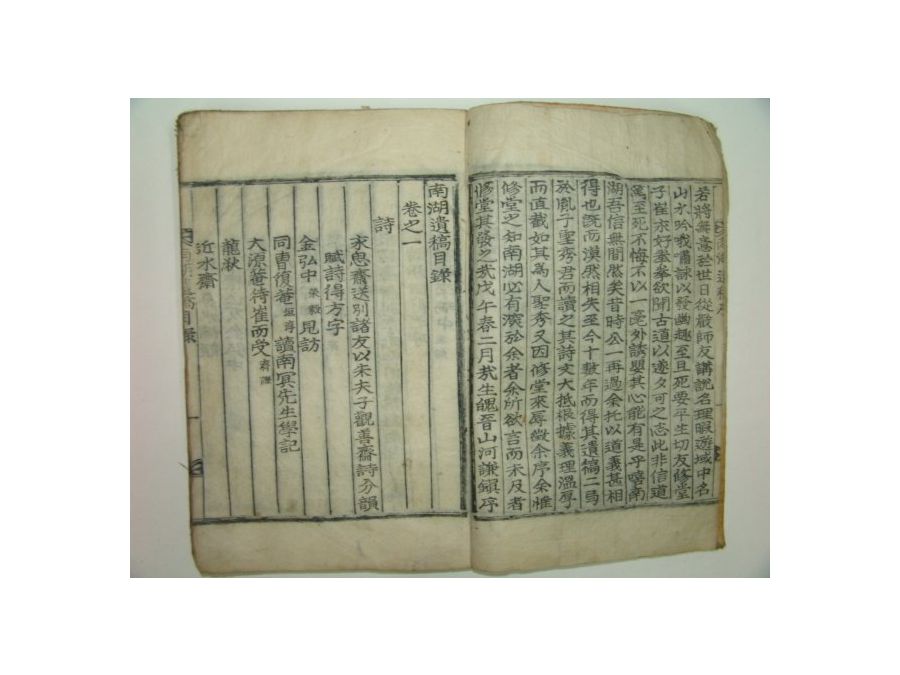 若將無意於世日從嚴師友講說名理暇遊域中名
山水吟哦嘯詠以發幽趣至且死要平生切友修堂
子崔亦好蓋拳欲聞古道以遂夕可之志此非信道
篤至死不悔不以一毫外誘嬰其心能有是乎噫南
湖吾信無間然矣昔時公一再過余托以道義甚相
得也旣而漠然相失至今十數年而得其遺稿二局
於胤子聖秀君而讀之其詩文大抵根據義理溫厚
而直截如其爲人聖秀又因修堂來辱徵余序余惟
修堂之知南湖必有演於余者余所欲言而未及者
修堂其發之哉戊午春二月哉生魄晉山河謙鎭序
南湖遺稿目錄
卷之一
詩
永思齋送別諸友以朱夫子觀善齋詩分韻
賦詩得方字
金弘中榮毅見訪
同曹復菴垣淳讀南冥先生學記
大源菴待崔而受
龍湫
近水齋